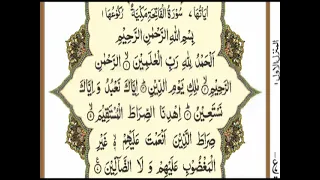 اٰيَاتُهَا ٧ سُوْرَةُ الْفَاتِحَةِ مَكِّيَّةٌ رُكُوْعُهَا ١
بِسْمِ اللّٰهِ الرَّحْمٰنِ الرَّحِيْمِ
اَلْحَمْدُ لِلّٰهِ رَبِّ الْعٰلَمِيْنَ ۙ الرَّحْمٰنِ
الرَّحِيْمِ ۙ مٰلِكِ يَوْمِ الدِّيْنِ ؕ اِيَّاكَ نَعْبُدُ وَ اِيَّاكَ
نَسْتَعِيْنُ ؕ اِهْدِنَا الصِّرَاطَ الْمُسْتَقِيْمَ ۙ
صِرَاطَ الَّذِيْنَ اَنْعَمْتَ عَلَيْهِمْ ۙ غَيْرِ
الْمَغْضُوْبِ عَلَيْهِمْ وَ لَا الضَّآلِّيْنَ
المنزل الاول